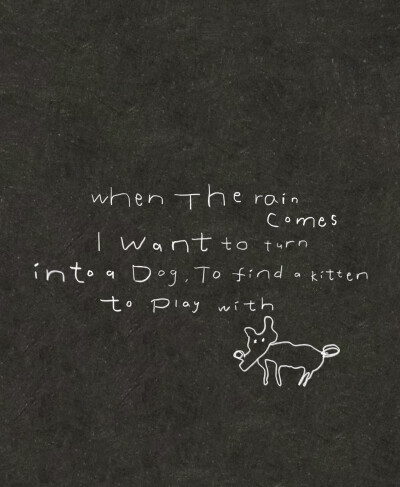 when The rain
comes
I want to turn
into a Dog. To find a kitten
to Play with